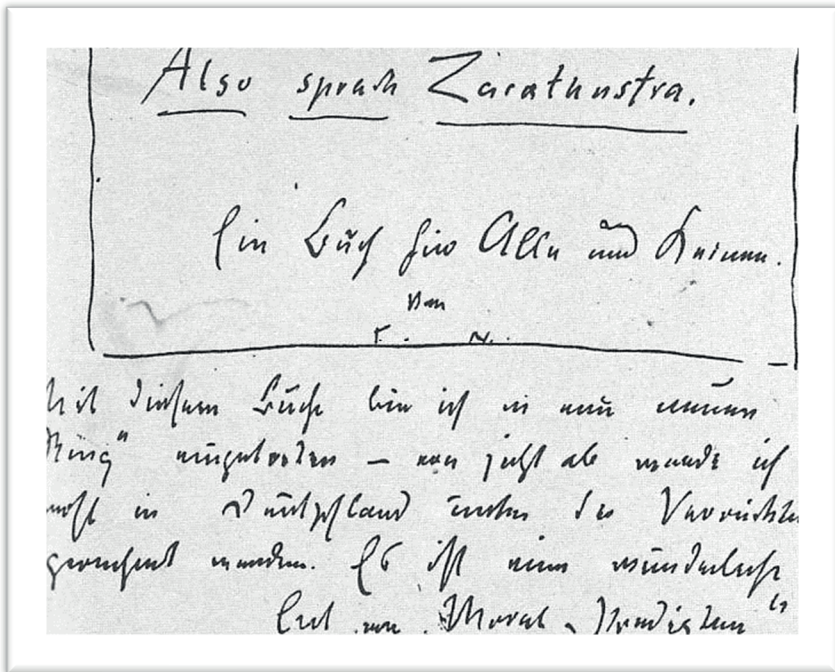 Also sprach Zarathustra.
Ein Buch für Alle und Keinen.
Von
F. N.
Mit diesem Buche bin ich in einen neuen
Ring“ eingetreten — von jetzt ab werde ich
wohl in Deutschland unter die Verrückten
gerechnet werden. Es ist eine wunderliche
Art von „Moral-Predigten“